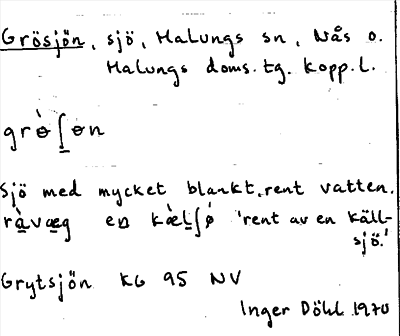 Grösjön, sjö, Malungs sn, Nås o.
Malungs doms. tg. Kopp. l.
grɵ̀ʃɵn
Sjö med mycket blankt, rent vatten.
'rent av en käll-
sjö.'
Grytsjön KG 95 NV
Inger Döhl 1970